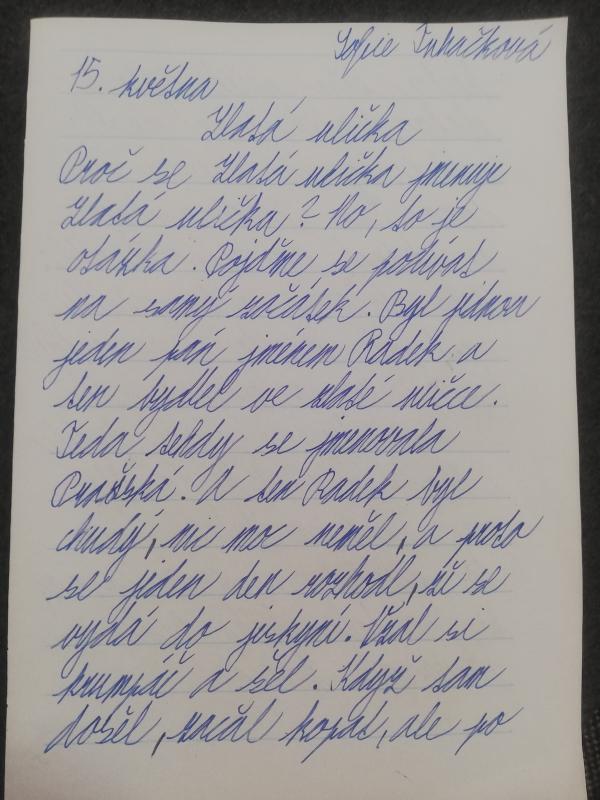 Sofie Tuháčková
15. května
Zlatá ulička
Proč se Zlatá ulička jmenuje
Zlatá ulička? No, to je
otázka. Pojďme se podívat
na samý začátek. Byl jednou
jeden pán jménem Radek a
ten bydlel ve zlaté uličce.
Teda tehdy se jmenovala
Pražská. A ten Radek byl
chudý, nic moc neměl, a proto
se jeden den rozhodl, že se
vydá do jeskyní. Vzal si
krumpáč a šel. Když tam
došel, začal kopat, ale po